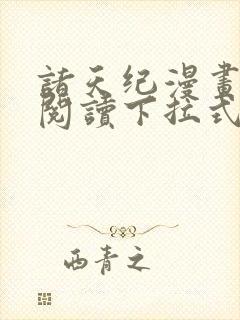 諸天纪漫畫
閱讀下拉式
西青之